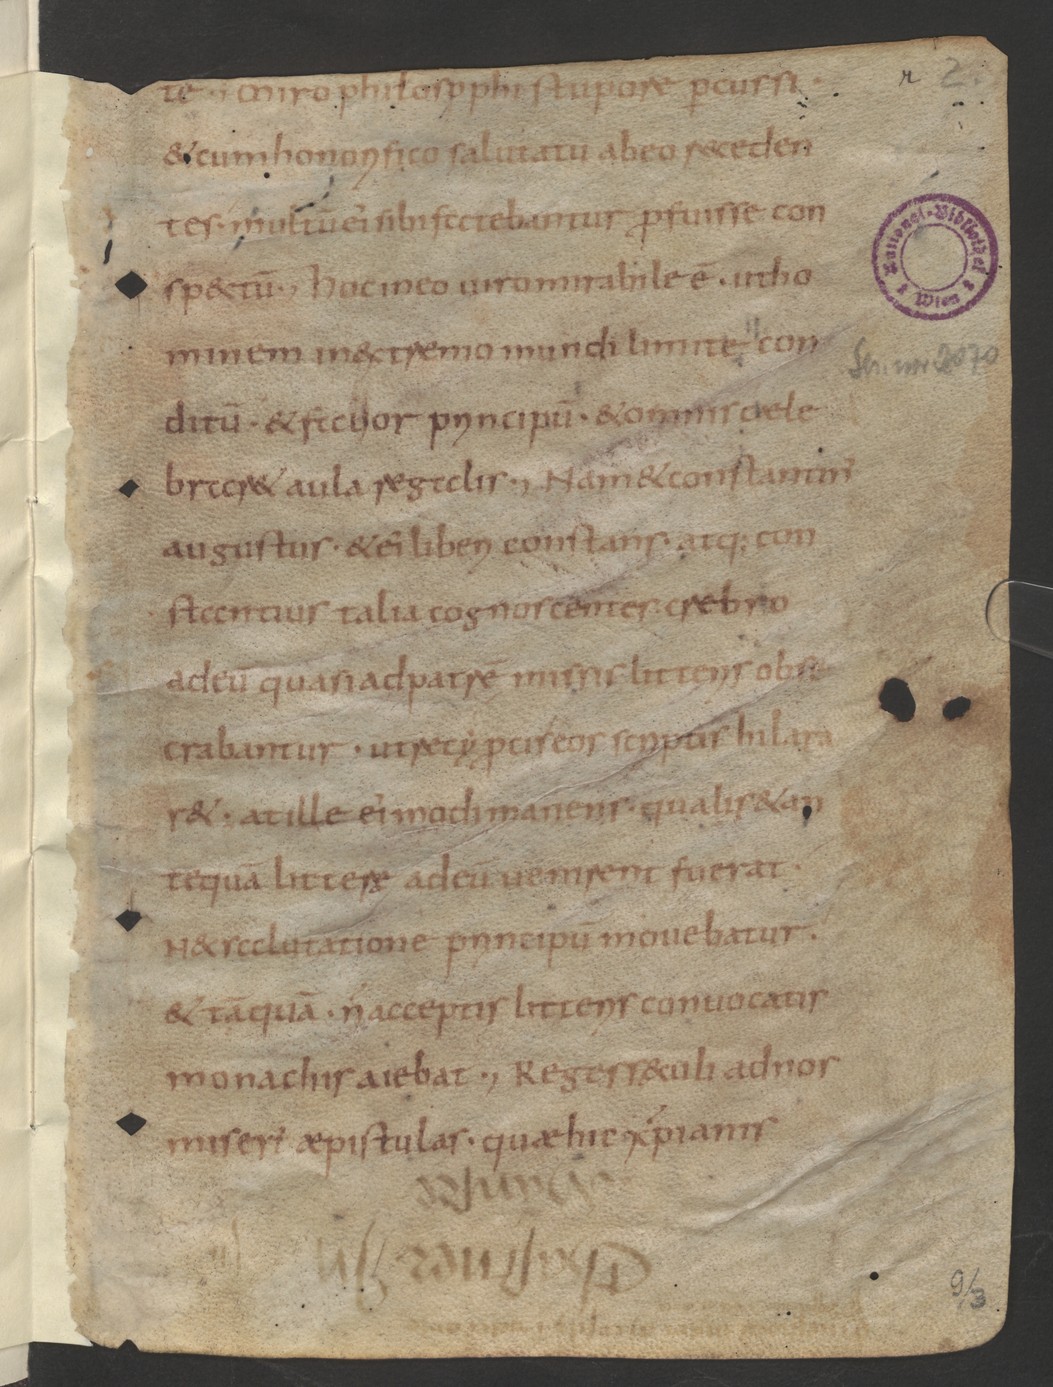 te · miro philosophi stupore pcussi ·
& cum honorifico salutatu ab eo receden
tes · multū ei sibi fatebantur pfuisse con
spectū ·, hoc in eo viro mirabile ē · ut ho
minem in extremo mundi limite con
ditū · & favor principū · & omnis cele
braret aula regalis ·, Nam & constantin
augustus · & ei liberi constans · atq; con
stantius talia cognoscentes crebro
ad eū quasi ad patrē missis litteris obse
crabantur · ut reciprocis eos scriptis hilara
ret · at ille ei modi manens · qualis & an
tequā litterę ad eū venirent fuerat ·
Nec salutatione principū movebatur ·
& tāquā · n acceptis litteris convocatis
monachis aiebat ·, Reges sæculi ad nos
miser æpistulas · quæ hic xpianis
r 2.
National-Bibliothek Wien
Ser. nov. 2070
9/3